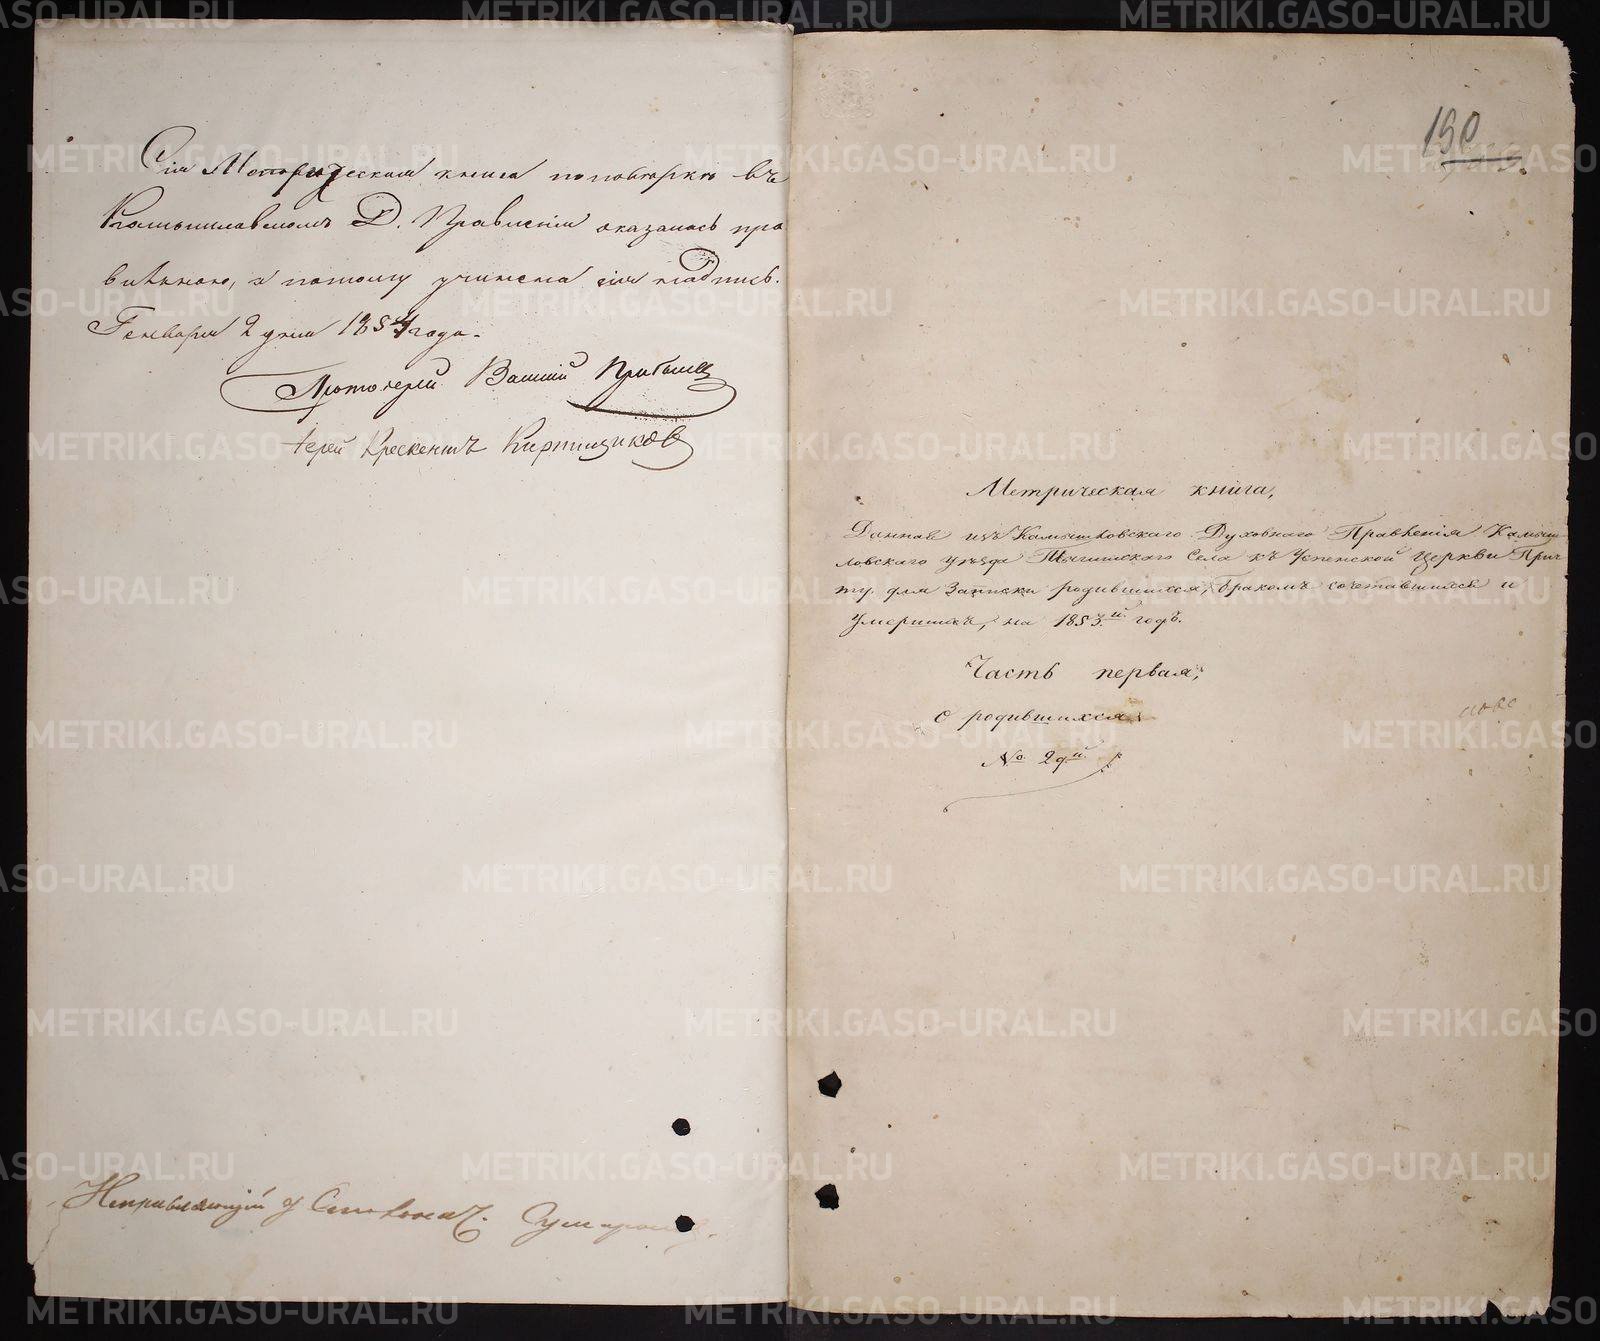 Сія Метрическая книга по повѣркѣ въ
Камышловскомъ Д. Правленіи оказалась пра
вильною, а потому учинена сія надпись.
Генваря 2 дня 1854 года.
Протоіерей Василій
Іерей Крескентъ Кирпищиковъ
190
Метрическая книга,
Данная изъ Камышловскаго Духовнаго Правленія Камыш
ловскаго уѣзда Села къ Успенской Церкви Прич
ту для Записки родившихся, бракомъ сочетавшихся и
умершихъ, на 1853й годъ.
Часть первая,
о родившихся
№ 2й
METRIKI.GASO-URAL.RU